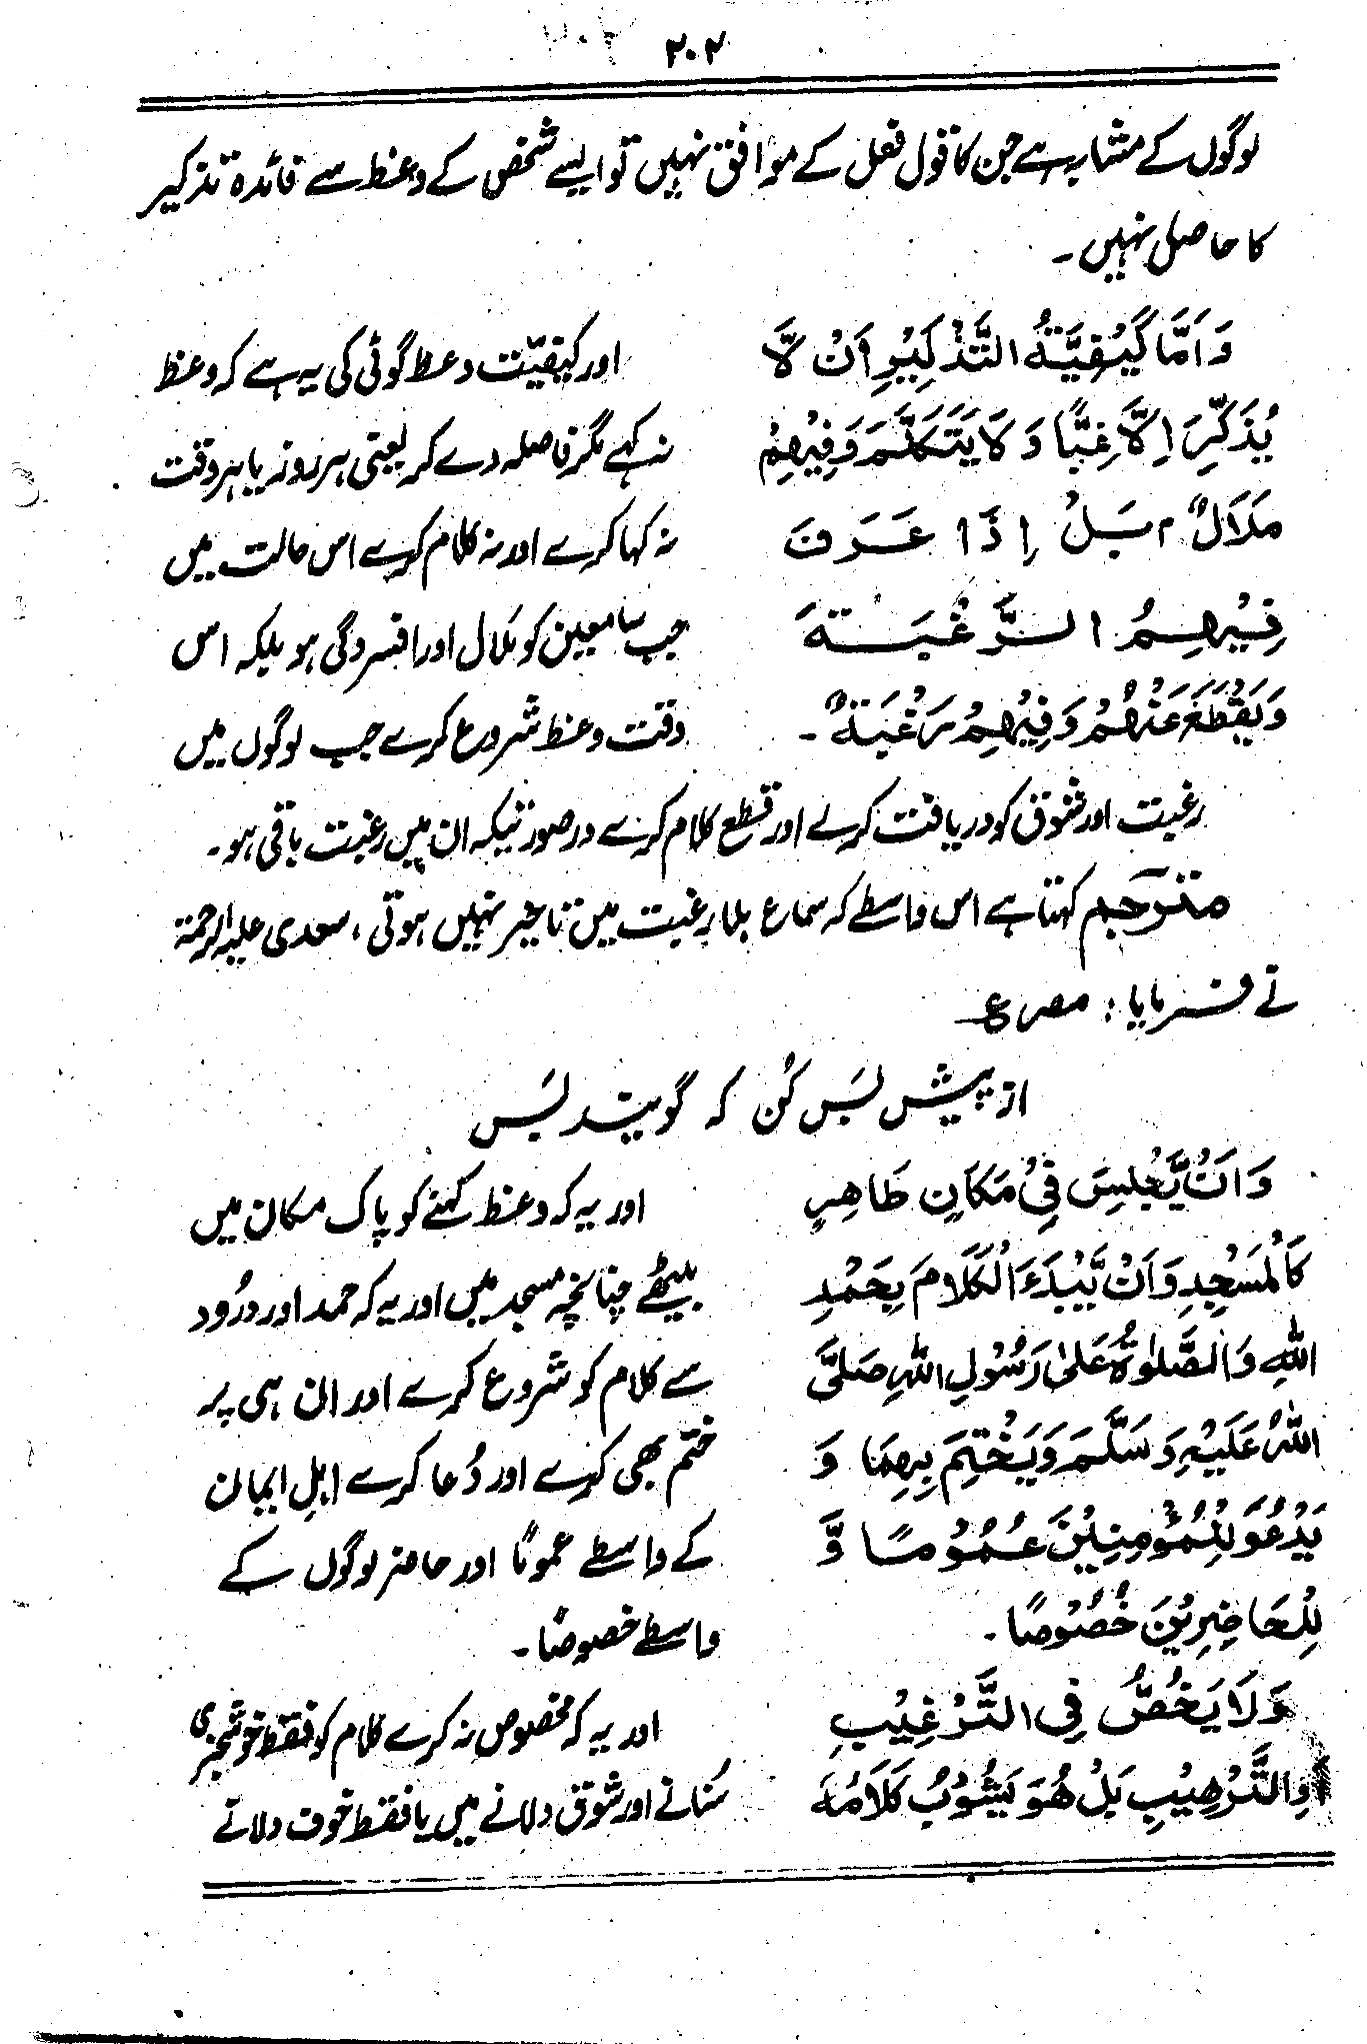 ۲۰۲
لوگوں کے مشابہ ہے جن کا قول فعل کے موافق نہیں تو ایسے شخص کے وعظ سے فائدہ تذکیر
کا حاصل نہیں۔
وَاَمَّا كَيْفِيَّةُ التَّذْكِيْرِ اَنْ لَّا
يُذَكِّرَ اِلَّا غِبًّا وَلَا يَتَكَلَّمَ وَفِيْهِمْ
مَلَالٌ بَلْ اِذَا عَرَفَ
فِيْهِمُ الرَّغْبَةَ
وَيَقْطَعَ عَنْهُمْ وَفِيْهِمْ رَغْبَةٌ۔
اور کیفیّت وعظ گوئی کی یہ ہے کہ وعظ
نہ کہے مگر فاصلہ دے کر یعنی ہر روز یا ہر وقت
نہ کہا کرے اور نہ کلام کرے اس حالت میں
جب سامعین کو ملال اور افسردگی ہو بلکہ اس
وقت وعظ شروع کرے جب لوگوں میں
رغبت اور شوق کو دریافت کرلے اور قطع کلام کرے درصورتیکہ ان میں رغبت باقی ہو۔
مترجم کہتا ہے اس واسطے کہ سماع بلا رغبت میں تاثیر نہیں ہوتی، سعدی علیہ الرحمۃ
نے فرمایا: مصرع
از پیش بَس کُن کہ گویند بَس
وَاَنْ يَّجْلِسَ فِيْ مَكَانٍ طَاهِرٍ
كَالْمَسْجِدِ وَاَنْ يَّبْدَءَ الْكَلَامَ بِحَمْدِ
اللهِ وَالصَّلٰوةُ عَلٰى رَسُوْلِ اللهِ صَلَّى
اللهُ عَلَيْهِ وَسَلَّمَ وَيَخْتِمَ بِهِمَا وَ
يَدْعُوَ لِلْمُؤْمِنِيْنَ عُمُوْمًا وَّ
لِلْحَاضِرِيْنَ خُصُوْصًا۔
اور یہ کہ وعظ کہنے کو پاک مکان میں
بیٹھے چنانچہ مسجد میں اور یہ کہ حمد اور درُود
سے کلام کو شروع کرے اور ان ہی پر
ختم بھی کرے اور دُعا کرے اہلِ ایمان
کے واسطے عموماً اور حاضر لوگوں کے
واسطے خصوصاً۔
وَلَا يَخُصُّ فِي التَّرْغِيْبِ
وِالتَّرْهِيْبِ بَلْ هُوَ يَشُوْبُ كَلَامَهٗ
اور یہ کہ مخصوص نہ کرے کلام کو فقط خوشخبری
سُنانے اور شوق دلانے میں یا فقط خوف دلاتے